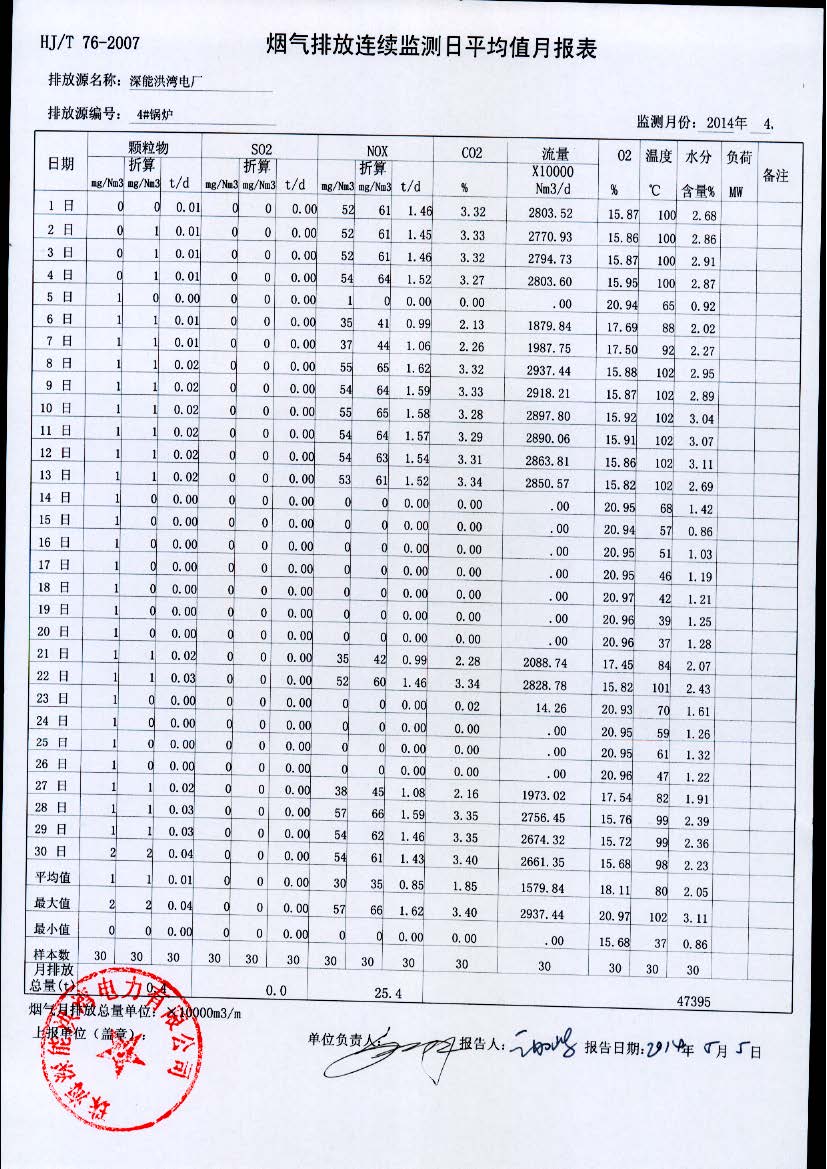 HJ/T 76-2007
烟气排放连续监测日平均值月报表
排放源名称: 深能洪湾电厂
排放源编号: 4#锅炉
监测月份: 2014年 4.
日期 颗粒物 SO2 NOX CO2 流量 O2 温度 水分 负荷 备注
折算 折算 折算 X10000
mg/Nm3 mg/Nm3 t/d mg/Nm3 mg/Nm3 t/d mg/Nm3 mg/Nm3 t/d % Nm3/d % ℃ 含量% MW
1 日 0 0 0.01 0 0 0.00 52 61 1.46 3.32 2803.52 15.87 100 2.68
2 日 0 1 0.01 0 0 0.00 52 61 1.45 3.33 2770.93 15.86 100 2.86
3 日 0 1 0.01 0 0 0.00 52 61 1.46 3.32 2794.73 15.87 100 2.91
4 日 0 1 0.01 0 0 0.00 54 64 1.52 3.27 2803.60 15.95 100 2.87
5 日 1 0 0.00 0 0 0.00 1 0 0.00 0.00 .00 20.94 65 0.92
6 日 1 1 0.01 0 0 0.00 35 41 0.99 2.13 1879.84 17.69 88 2.02
7 日 1 1 0.01 0 0 0.00 37 44 1.06 2.26 1987.75 17.50 92 2.27
8 日 1 1 0.02 0 0 0.00 55 65 1.62 3.32 2937.44 15.88 102 2.95
9 日 1 1 0.02 0 0 0.00 54 64 1.59 3.33 2918.21 15.87 102 2.89
10 日 1 1 0.02 0 0 0.00 55 65 1.58 3.28 2897.80 15.92 102 3.04
11 日 1 1 0.02 0 0 0.00 54 64 1.57 3.29 2890.06 15.91 102 3.07
12 日 1 1 0.02 0 0 0.00 54 63 1.54 3.31 2863.81 15.86 102 3.11
13 日 1 1 0.02 0 0 0.00 53 61 1.52 3.34 2850.57 15.82 102 2.69
14 日 1 0 0.00 0 0 0.00 0 0 0.00 0.00 .00 20.95 68 1.42
15 日 1 0 0.00 0 0 0.00 0 0 0.00 0.00 .00 20.94 57 0.86
16 日 1 0 0.00 0 0 0.00 0 0 0.00 0.00 .00 20.95 51 1.03
17 日 1 0 0.00 0 0 0.00 0 0 0.00 0.00 .00 20.95 46 1.19
18 日 1 0 0.00 0 0 0.00 0 0 0.00 0.00 .00 20.97 42 1.21
19 日 1 0 0.00 0 0 0.00 0 0 0.00 0.00 .00 20.96 39 1.25
20 日 1 0 0.00 0 0 0.00 0 0 0.00 0.00 .00 20.96 37 1.28
21 日 1 1 0.02 0 0 0.00 35 42 0.99 2.28 2088.74 17.45 84 2.07
22 日 1 1 0.03 0 0 0.00 52 60 1.46 3.34 2828.78 15.82 101 2.43
23 日 1 0 0.00 0 0 0.00 0 0 0.00 0.02 14.26 20.93 70 1.61
24 日 1 0 0.00 0 0 0.00 0 0 0.00 0.00 .00 20.95 59 1.26
25 日 1 0 0.00 0 0 0.00 0 0 0.00 0.00 .00 20.95 61 1.32
26 日 1 0 0.00 0 0 0.00 0 0 0.00 0.00 .00 20.96 47 1.22
27 日 1 1 0.02 0 0 0.00 38 45 1.08 2.16 1973.02 17.54 82 1.91
28 日 1 1 0.03 0 0 0.00 57 66 1.59 3.35 2756.45 15.76 99 2.39
29 日 1 1 0.03 0 0 0.00 54 62 1.46 3.35 2674.32 15.72 99 2.36
30 日 2 2 0.04 0 0 0.00 54 61 1.43 3.40 2661.35 15.68 98 2.23
平均值 1 1 0.01 0 0 0.00 30 35 0.85 1.85 1579.84 18.11 80 2.05
最大值 2 2 0.04 0 0 0.00 57 66 1.62 3.40 2937.44 20.97 102 3.11
最小值 0 0 0.00 0 0 0.00 0 0 0.00 0.00 .00 15.68 37 0.86
样本数 30 30 30 30 30 30 30 30 30 30 30 30 30 30
月排放
总量(t) 0.4 0.0 25.4 47395
烟气月排放总量单位: X10000m3/m
上报单位 (盖章):
单位负责人: 报告人: 报告日期: 2014年 5月 5日
珠海深能洪湾电力有限公司